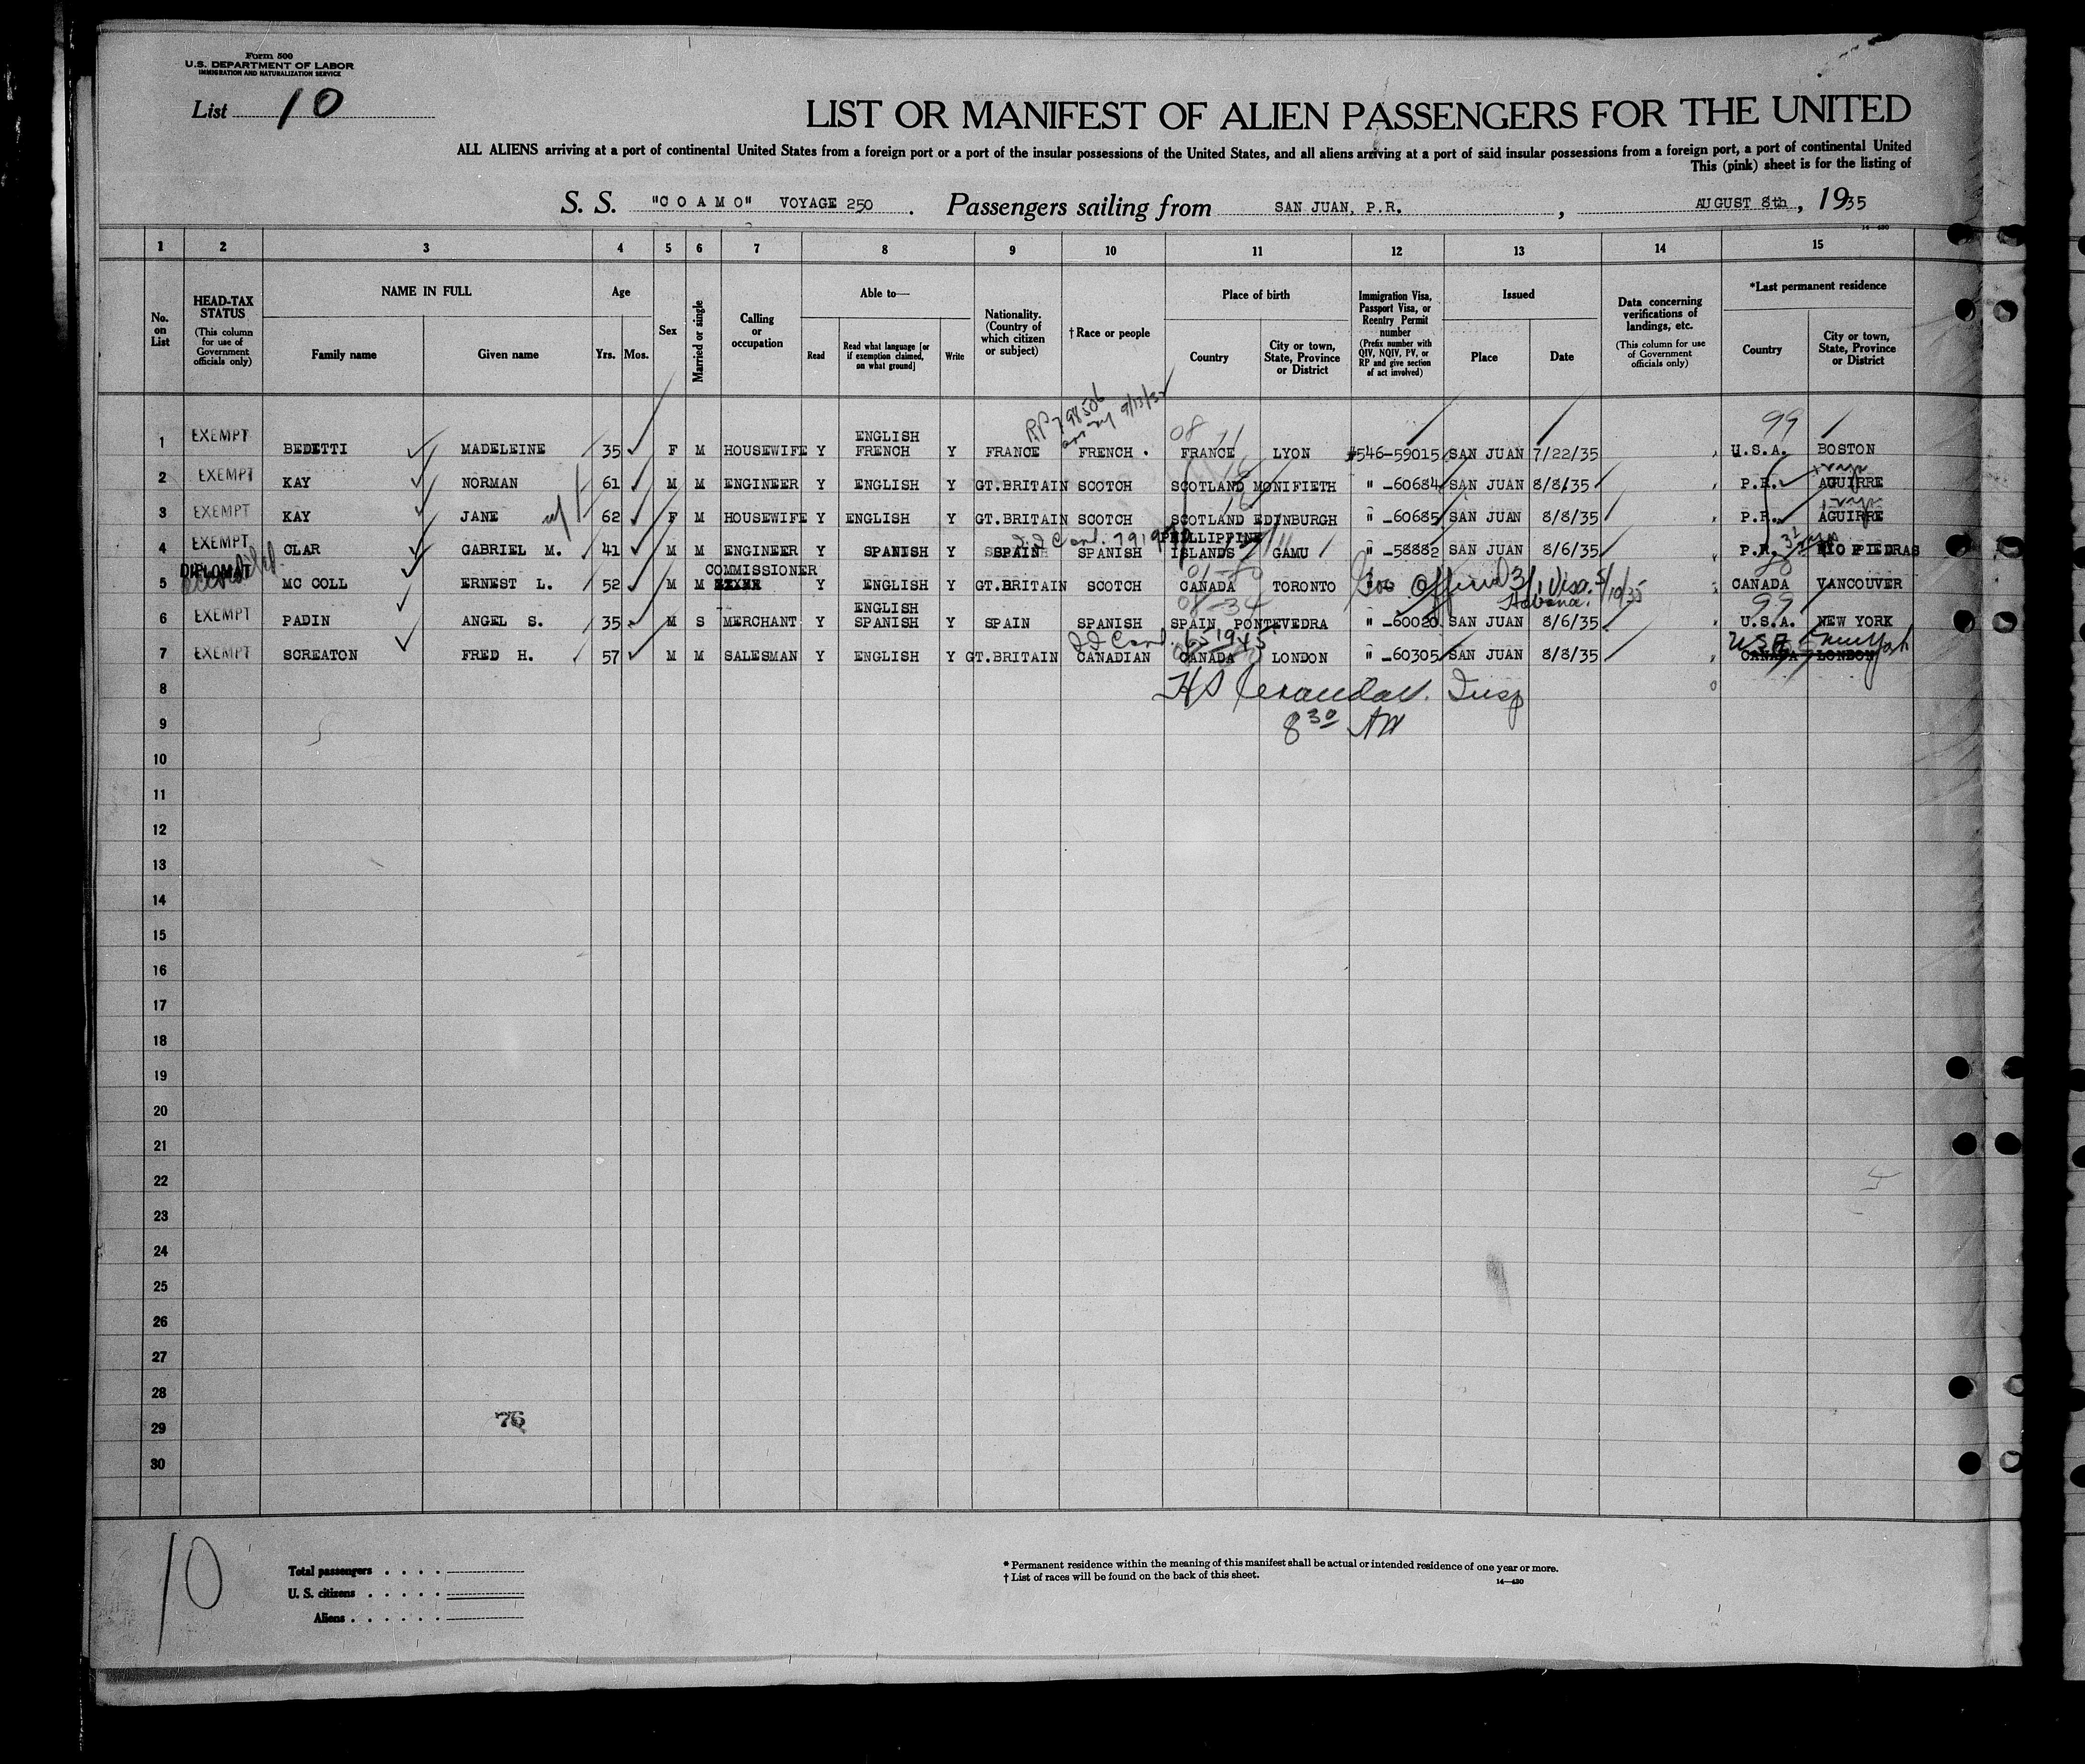 Form 500
U.S. DEPARTMENT OF LABOR
IMMIGRATION AND NATURALIZATION SERVICE
List 10
LIST OR MANIFEST OF ALIEN PASSENGERS FOR THE UNITED
ALL ALIENS arriving at a port of continental United States from a foreign port or a port of the insular possessions of the United States, and all aliens arriving at a port of said insular possessions from a foreign port, a port of continental United
This (pink) sheet is for the listing of
S. S. "COAMO" VOYAGE 250. Passengers sailing from SAN JUAN, P.R., AUGUST 8th, 1935
14—430
1 2 3 4 5 6 7 8 9 10 11 12 13 14 15
No. on List
HEAD-TAX STATUS (This column for use of Government officials only)
NAME IN FULL
Family name
Given name
Age
Yrs. Mos.
Sex
Married or single
Calling or occupation
Able to—
Read
Read what language [or if exemption claimed, on what ground]
Write
Nationality. (Country of which citizen or subject)
†Race or people
Place of birth
Country
City or town, State, Province or District
Immigration Visa, Passport Visa, or Reentry Permit number (Prefix number with QIV, NQIV, PV, or RP and give section of act involved)
Issued
Place
Date
Data concerning verifications of landings, etc. (This column for use of Government officials only)
*Last permanent residence
Country
City or town, State, Province or District
RP 798506
9/13/32
08 11 99
1 EXEMPT BEDETTI MADELEINE 35 F M HOUSEWIFE Y ENGLISH FRENCH Y FRANCE FRENCH. FRANCE LYON #546-59015 SAN JUAN 7/22/35 U.S.A. BOSTON
2 EXEMPT KAY NORMAN 61 M M ENGINEER Y ENGLISH Y GT.BRITAIN SCOTCH SCOTLAND MONIFIETH " -60684 SAN JUAN 8/8/35 P.R. AGUIRRE
3 EXEMPT KAY JANE 62 F M HOUSEWIFE Y ENGLISH Y GT.BRITAIN SCOTCH SCOTLAND EDINBURGH " -60685 SAN JUAN 8/8/35 P.R. AGUIRRE
4 EXEMPT CLAR GABRIEL M. 41 M M ENGINEER Y SPANISH Y SPAIN SPANISH PHILLIPPINE ISLANDS GAMU " -58882 SAN JUAN 8/6/35 P.R. RIO PIEDRAS
5 DIPLOMAT MC COLL ERNEST L. 52 M M COMMISSIONER Y ENGLISH Y GT.BRITAIN SCOTCH CANADA TORONTO Official 3/1 Visa. Habana. 5/10/35 CANADA VANCOUVER
08-34 99
6 EXEMPT PADIN ANGEL S. 35 M S MERCHANT Y ENGLISH SPANISH Y SPAIN SPANISH SPAIN PONTEVEDRA " -60020 SAN JUAN 8/6/35 U.S.A. NEW YORK
7 EXEMPT SCREATON FRED H. 57 M M SALESMAN Y ENGLISH Y GT.BRITAIN CANADIAN CANADA LONDON " -60305 SAN JUAN 8/8/35 CANADA LONDON USA
8 Insp
9 8 30 AM
10
11
12
13
14
15
16
17
18
19
20
21
22
23
24
25
26
27
28
29
30
76
10
Total passengers . . . .
U. S. citizens . . . . .
Aliens . . . . . .
* Permanent residence within the meaning of this manifest shall be actual or intended residence of one year or more.
† List of races will be found on the back of this sheet.
14—430